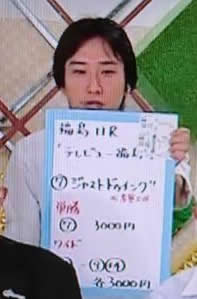 福島11R
"テレビュー福島"
⑦ジャストドゥイング
単勝
⑦ 3000円
ワイド
各3000円